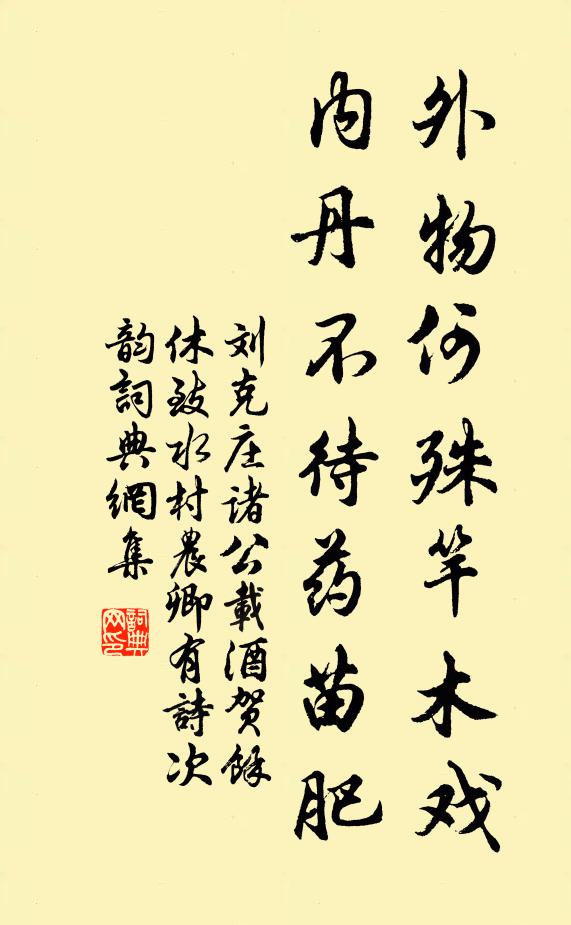 外物何殊竿木戏
内丹不待药苗肥
刘克庄諸公載酒贺餘
休致水村農卿有詩次
韵詞典網集
詞典
网印